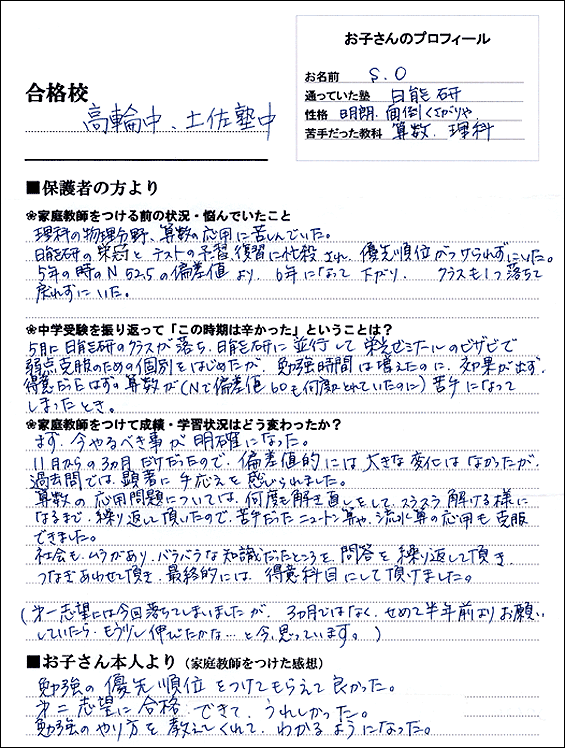 お子さんのプロフィール
お名前 S.O
通っていた塾 日能研
性格 明朗、面倒くさがりや
苦手だった教科 算数、理科
合格校
高輪中、土佐塾中
■保護者の方より
❀家庭教師をつける前の状況・悩んでいたこと
理科の物理分野、算数の応用に苦しんでいた。
日能研の栄冠とテストの予習、復習に忙殺され、優先順位がつけられずにいた。
5年の時のN 52.5の偏差値より、6年になって下がり、クラスも1つ落ちて
戻れずにいた。
❀中学受験を振り返って「この時期は辛かった」ということは？
5月に日能研のクラスが落ち、日能研に並行して栄光ゼミナールのビザビで
弱点克服のための個別をはじめたが、勉強時間は増えたのに、効果が出ず、
得意だったはずの算数が（Nで偏差値60も何度かとれていたのに）苦手になって
しまったとき。
❀家庭教師をつけて成績・学習状況はどう変わったか？
まず、今やるべき事が明確になった。
11月からの3ヵ月だけだったので、偏差値的には大きな変化はなかったが、
過去問では顕著に手応えを感じられました。
算数の応用問題については、何度も解き直しをして、スラスラ解ける様に
なるまで、繰り返して頂いたので、苦手だったニュートン算や、流水算の応用も克服
できました。
社会も、ムラがあり、バラバラな知識だったところを、問答を繰り返して頂き、
つなぎあわせて頂き、最終的には、得意科目にして頂けました。
（第一志望には今回落ちてしまいましたが、3ヵ月ではなく、せめて半年前よりお願い
していたら、もう少し伸びたかな…と今、思っています。）
■お子さん本人より（家庭教師をつけた感想）
勉強の優先順位をつけてもらえて良かった。
第二志望に合格できて、うれしかった。
勉強のやり方を教えてくれて、わかるようになった。